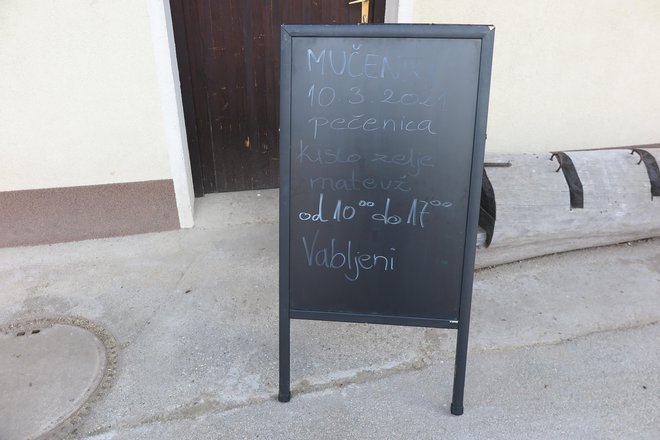 MUČENIKI
10.3.2021
pečenica
kislo zelje
matevž
od 10⁰⁰ do 17⁰⁰
Vabljeni